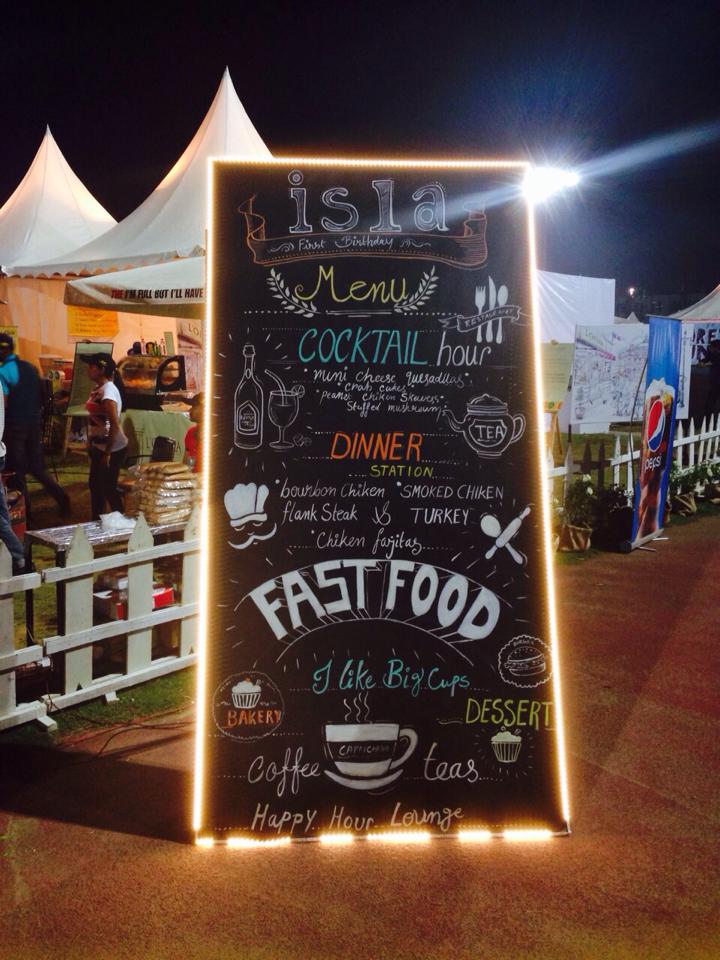 isla
First Birthday
Menu
RESTAURANT
COCKTAIL hour
*mini cheese quesadillas*
*crab cakes*
*Peanet chiken Skewers*
Stuffed mushroom
TEA
DINNER
STATION
*bourbon Chiken *SMOKED CHIKEN
flank Steak & TURKEY
*Chiken farjitas
FAST FOOD
I like Big Cups
BAKERY
DESSERT
CAPPICHINO
Coffee teas
Happy Hour Lounge
I'M FULL BUT I'LL HAVE
pepsi